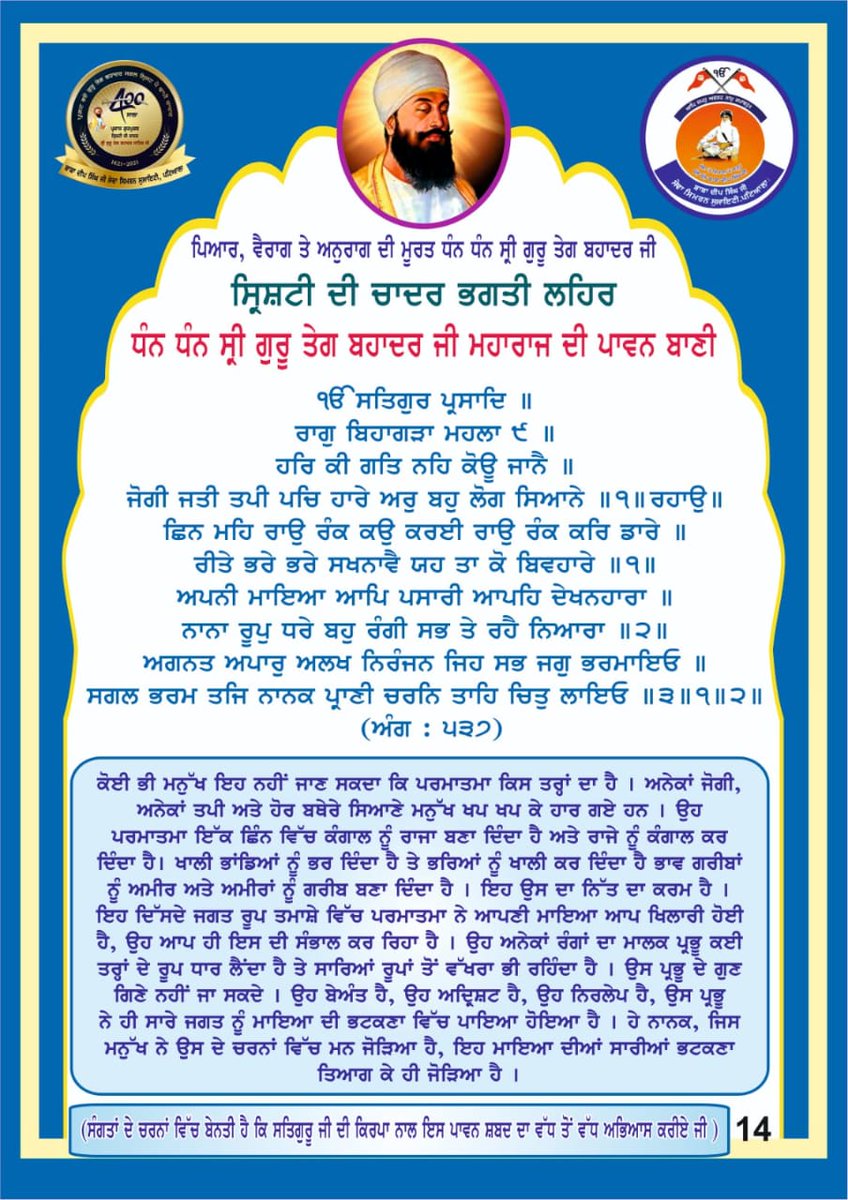 ੪੦੦
ਸਾਲਾ
1621-2021
ਬਾਬਾ ਦੀਪ ਸਿੰਘ ਜੀ ਸੇਵਾ ਸਿਮਰਨ ਸੁਸਾਇਟੀ, ਪਟਿਆਲਾ
ੴ
ਬਾਬਾ ਦੀਪ ਸਿੰਘ ਜੀ
ਸੇਵਾ ਸਿਮਰਨ ਸੁਸਾਇਟੀ,ਪਟਿਆਲਾ
ਪਿਆਰ, ਵੈਰਾਗ ਤੇ ਅਨੁਰਾਗ ਦੀ ਮੂਰਤ ਧੰਨ ਧੰਨ ਸ੍ਰੀ ਗੁਰੂ ਤੇਗ ਬਹਾਦਰ ਜੀ
ਸ੍ਰਿਸ਼ਟੀ ਦੀ ਚਾਦਰ ਭਗਤੀ ਲਹਿਰ
ਧੰਨ ਧੰਨ ਸ੍ਰੀ ਗੁਰੂ ਤੇਗ ਬਹਾਦਰ ਜੀ ਮਹਾਰਾਜ ਦੀ ਪਾਵਨ ਬਾਣੀ
ੴ ਸਤਿਗੁਰ ਪ੍ਰਸਾਦਿ ॥
ਰਾਗੁ ਬਿਹਾਗੜਾ ਮਹਲਾ ੯ ॥
ਹਰਿ ਕੀ ਗਤਿ ਨਹਿ ਕੋਊ ਜਾਨੈ ॥
ਜੋਗੀ ਜਤੀ ਤਪੀ ਪਚਿ ਹਾਰੇ ਅਰੁ ਬਹੁ ਲੋਗ ਸਿਆਨੇ ॥੧॥ਰਹਾਉ॥
ਛਿਨ ਮਹਿ ਰਾਉ ਰੰਕ ਕਉ ਕਰਈ ਰਾਉ ਰੰਕ ਕਰਿ ਡਾਰੇ ॥
ਰੀਤੇ ਭਰੇ ਭਰੇ ਸਖਨਾਵੈ ਯਹ ਤਾ ਕੋ ਬਿਵਹਾਰੇ ॥੧॥
ਅਪਨੀ ਮਾਇਆ ਆਪਿ ਪਸਾਰੀ ਆਪਹਿ ਦੇਖਨਹਾਰਾ ॥
ਨਾਨਾ ਰੂਪੁ ਧਰੇ ਬਹੁ ਰੰਗੀ ਸਭ ਤੇ ਰਹੈ ਨਿਆਰਾ ॥੨॥
ਅਗਨਤ ਅਪਾਰੁ ਅਲਖ ਨਿਰੰਜਨ ਜਿਹ ਸਭ ਜਗੁ ਭਰਮਾਇਓ ॥
ਸਗਲ ਭਰਮ ਤਜਿ ਨਾਨਕ ਪ੍ਰਾਣੀ ਚਰਨਿ ਤਾਹਿ ਚਿਤੁ ਲਾਇਓ ॥੩॥੧॥੨॥
(ਅੰਗ : ੫੩੭)
ਕੋਈ ਭੀ ਮਨੁੱਖ ਇਹ ਨਹੀਂ ਜਾਣ ਸਕਦਾ ਕਿ ਪਰਮਾਤਮਾ ਕਿਸ ਤਰ੍ਹਾਂ ਦਾ ਹੈ । ਅਨੇਕਾਂ ਜੋਗੀ,
ਅਨੇਕਾਂ ਤਪੀ ਅਤੇ ਹੋਰ ਬਥੇਰੇ ਸਿਆਣੇ ਮਨੁੱਖ ਖਪ ਖਪ ਕੇ ਹਾਰ ਗਏ ਹਨ । ਉਹ
ਪਰਮਾਤਮਾ ਇੱਕ ਛਿੰਨ ਵਿੱਚ ਕੰਗਾਲ ਨੂੰ ਰਾਜਾ ਬਣਾ ਦਿੰਦਾ ਹੈ ਅਤੇ ਰਾਜੇ ਨੂੰ ਕੰਗਾਲ ਕਰ
ਦਿੰਦਾ ਹੈ। ਖਾਲੀ ਭਾਂਡਿਆਂ ਨੂੰ ਭਰ ਦਿੰਦਾ ਹੈ ਤੇ ਭਰਿਆਂ ਨੂੰ ਖਾਲੀ ਕਰ ਦਿੰਦਾ ਹੈ ਭਾਵ ਗਰੀਬਾਂ
ਨੂੰ ਅਮੀਰ ਅਤੇ ਅਮੀਰਾਂ ਨੂੰ ਗਰੀਬ ਬਣਾ ਦਿੰਦਾ ਹੈ । ਇਹ ਉਸ ਦਾ ਨਿੱਤ ਦਾ ਕਰਮ ਹੈ ।
ਇਹ ਦਿੱਸਦੇ ਜਗਤ ਰੂਪ ਤਮਾਸ਼ੇ ਵਿੱਚ ਪਰਮਾਤਮਾ ਨੇ ਆਪਣੀ ਮਾਇਆ ਆਪ ਖਿਲਾਰੀ ਹੋਈ
ਹੈ, ਉਹ ਆਪ ਹੀ ਇਸ ਦੀ ਸੰਭਾਲ ਕਰ ਰਿਹਾ ਹੈ । ਉਹ ਅਨੇਕਾਂ ਰੰਗਾਂ ਦਾ ਮਾਲਕ ਪ੍ਰਭੂ ਕਈ
ਤਰ੍ਹਾਂ ਦੇ ਰੂਪ ਧਾਰ ਲੈਂਦਾ ਹੈ ਤੇ ਸਾਰਿਆਂ ਰੂਪਾਂ ਤੋਂ ਵੱਖਰਾ ਭੀ ਰਹਿੰਦਾ ਹੈ । ਉਸ ਪ੍ਰਭੂ ਦੇ ਗੁਣ
ਗਿਣੇ ਨਹੀਂ ਜਾ ਸਕਦੇ । ਉਹ ਬੇਅੰਤ ਹੈ, ਉਹ ਅਦ੍ਰਿਸ਼ਟ ਹੈ, ਉਹ ਨਿਰਲੇਪ ਹੈ, ਉਸ ਪ੍ਰਭੂ
ਨੇ ਹੀ ਸਾਰੇ ਜਗਤ ਨੂੰ ਮਾਇਆ ਦੀ ਭਟਕਣਾ ਵਿੱਚ ਪਾਇਆ ਹੋਇਆ ਹੈ । ਹੇ ਨਾਨਕ, ਜਿਸ
ਮਨੁੱਖ ਨੇ ਉਸ ਦੇ ਚਰਨਾਂ ਵਿੱਚ ਮਨ ਜੋੜਿਆ ਹੈ, ਇਹ ਮਾਇਆ ਦੀਆਂ ਸਾਰੀਆਂ ਭਟਕਣਾ
ਤਿਆਗ ਕੇ ਹੀ ਜੋੜਿਆ ਹੈ ।
(ਸੰਗਤਾਂ ਦੇ ਚਰਨਾਂ ਵਿੱਚ ਬੇਨਤੀ ਹੈ ਕਿ ਸਤਿਗੁਰੂ ਜੀ ਦੀ ਕਿਰਪਾ ਨਾਲ ਇਸ ਪਾਵਨ ਸ਼ਬਦ ਦਾ ਵੱਧ ਤੋਂ ਵੱਧ ਅਭਿਆਸ ਕਰੀਏ ਜੀ )
14